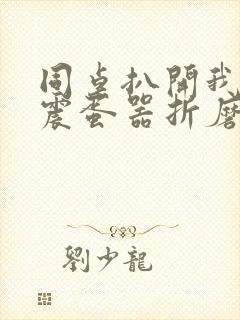 同桌扒開我
震蛋器折磨
劉少龍